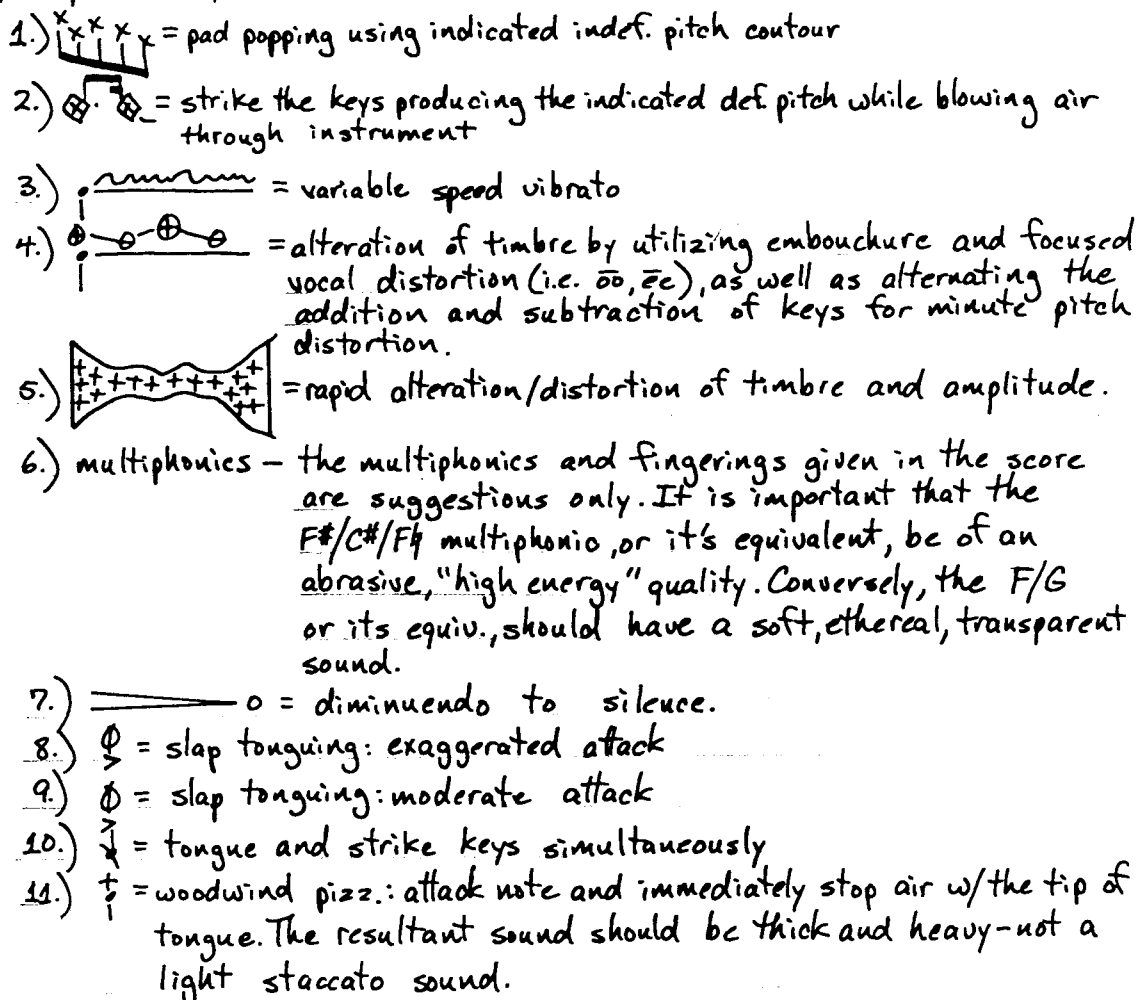 1.) = pad popping using indicated indef. pitch contour
2.) = strike the keys producing the indicated def. pitch while blowing air
through instrument
3.) = variable speed vibrato
4.) = alteration of timbre by utilizing embouchure and focused
vocal distortion (i.e. ōō, ēē), as well as alternating the
addition and subtraction of keys for minute pitch
distortion.
5.) = rapid alteration/distortion of timbre and amplitude.
6.) multiphonics – the multiphonics and fingerings given in the score
are suggestions only. It is important that the
F#/C#/F♮ multiphonic, or it's equivalent, be of an
abrasive, "high energy" quality. Conversely, the F/G
or its equiv., should have a soft, ethereal, transparent
sound.
7.) o = diminuendo to silence.
8.) = slap tonguing: exaggerated attack
9.) = slap tonguing: moderate attack
10.) = tongue and strike keys simultaneously
11.) = woodwind pizz.: attack note and immediately stop air w/the tip of
tongue. The resultant sound should be thick and heavy-not a
light staccato sound.